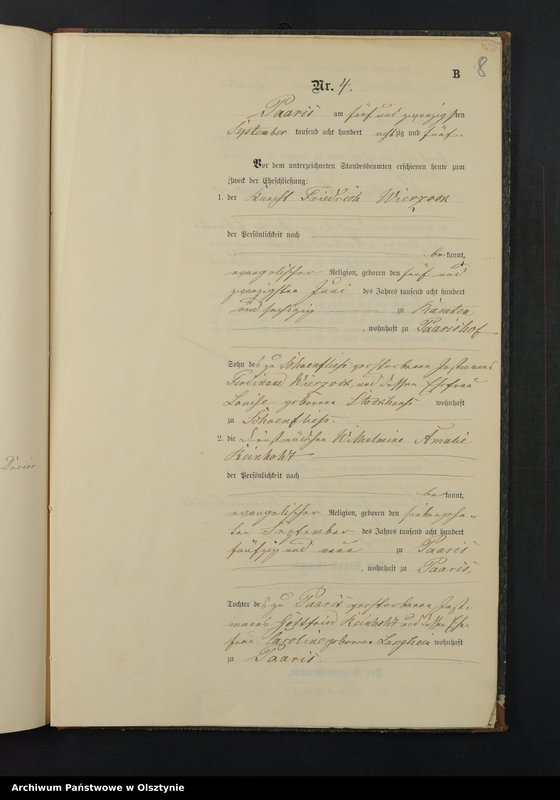 8
B
Nr. 4.
Paaris am fünf und zwanzigsten
September tausend acht hundert achtzig und fünf.
Vor dem unterzeichneten Standesbeamten erschienen heute zum
Zweck der Eheschließung:
1. der Knecht Friedrich Wierzock
der Persönlichkeit nach
bekannt,
evangelischer Religion, geboren den fünf und
zwanzigsten Juni des Jahres tausend acht hundert
und sechszig zu
, wohnhaft zu Paarishof
Sohn des zu Schoenfließ verstorbenen Instmanns
Ferdinand Wierzock, und dessen Ehefrau
Louise, geborene wohnhaft
zu Schoenfließ.
2. die Dienstmädchen Wilhelmine Amalie
Reinholdt
der Persönlichkeit nach
bekannt,
evangelischer Religion, geboren den siebenzehn-
ten September des Jahres tausend acht hundert
fünfzig und neun zu Paaris
, wohnhaft zu Paaris,
Tochter des zu Paaris verstorbenen Inst-
manns Gottfried Reinholdt und dessen Ehe-
frau Caroline geborene wohnhaft
zu Paaris.
Archiwum Państwowe w Olsztynie